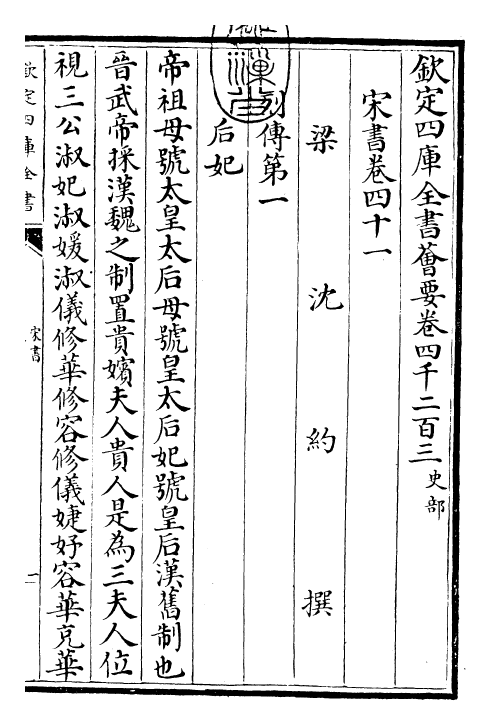 欽定四庫全書薈要卷四千二百三 史部
宋書卷四十一
梁 沈 約 撰
列傳第一
后妃
帝祖母號太皇太后母號皇太后妃號皇后漢舊制也
晉武帝採漢魏之制置貴嬪夫人貴人是為三夫人位
視三公淑妃淑媛淑儀修華修容修儀婕妤容華充華
欽定四庫全書
宋書
一